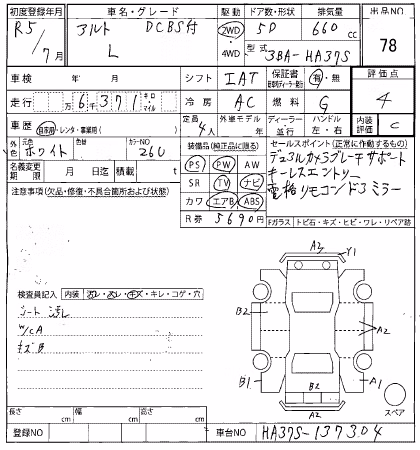 初度登録年月 車名・グレード 駆動 ドア数・形状 排気量 出品NO
R5/7月 アルト DCBS付 2WD 5D 660cc 78
L 4WD 型式 3BA-HA37S
車検 年 月 シフト IAT 保証書 有・無 評価点
走行 万6千371 キロ・マイル 冷房 AC 燃料 G 4
車歴 自家用・レンタ・事業用( ) 定員 4人 外車モデル 年 ディーラー・並行 ハンドル 左・右 内装 C
外色 元色 ホワイト 色替 カラーNO 26U 装備品(純正品に限る) セールスポイント(正常に作動するもの)
名義変更期限 月 日迄 積載 t PS PW デュアルカメラブレーキサポート
注意事項(欠品・修復・不具合箇所および状態) SR AW キーレスエントリー
TV ナビ 電格リモコンドアミラー
カワ エアB ABS
R券 5690円 Fガラス トビ石・キズ・ヒビ・ワレ・リペア跡
A2 Y1
検査員記入 内装 汚レ・スレ・キズ・キレ・コゲ・穴 B2
シート汚レ A2
W/CA
キズB B1 B2 A1
A2 スペア
長さ cm 幅 cm 高さ cm
登録NO 車台NO HA37S-137304